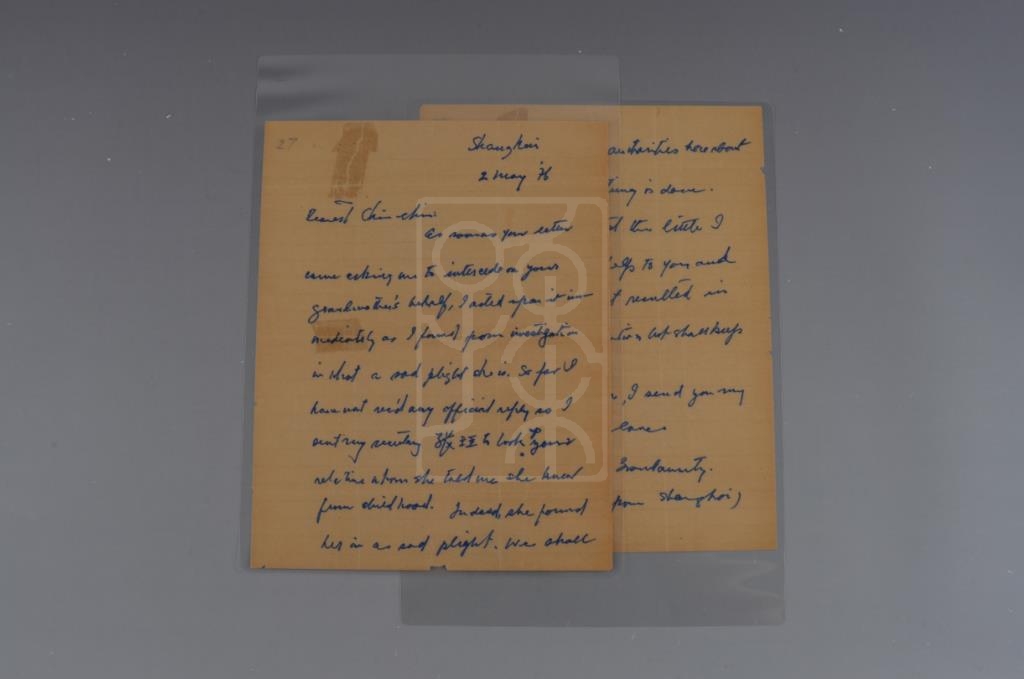 27
Shanghai
2 May '76
Dearest Chin-chin:
As soon as your letter
came asking me to intercede on your
grandmother's behalf, I acted upon it im-
mediately as I found from investigation
in what a sad plight she is. So far I
have not rec'd any official reply so I
sent my secretary to look up your
relative whom she told me she knew
from childhood. Indeed, she found
her in as sad plight. We shall
authorities here about
thing is done.
t the little I
help to you and
t resulted in
but shall keep
, I send you my
love
Grandaunty.
from Shanghai)